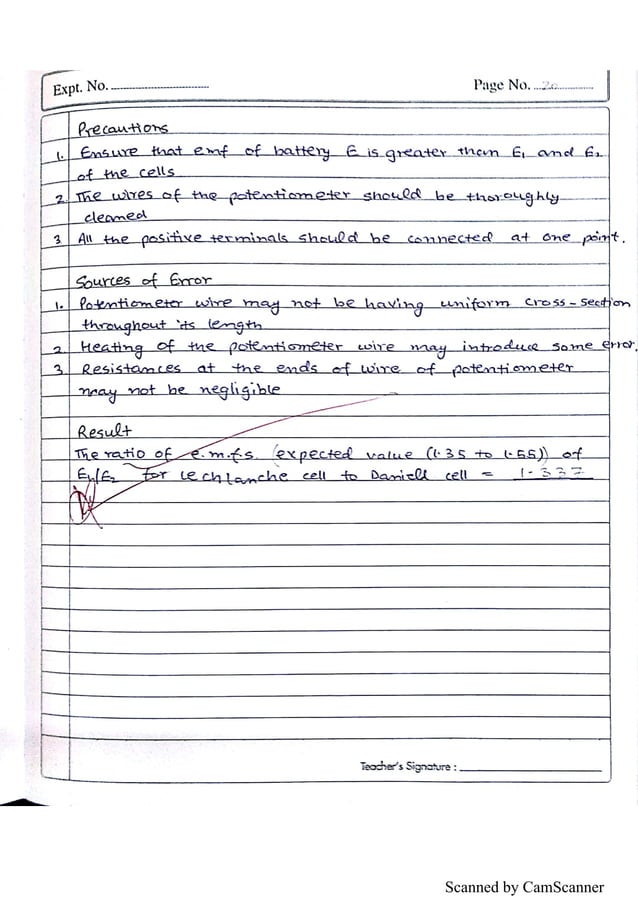 Expt. No.
Page No. 20
Precautions
1. Ensure that emf of battery E is greater than E₁ and E₂
of the cells
2. The wires of the potentiometer should be thoroughly
cleaned
3 All the positive terminals should be connected at one point.
Sources of Error
1. Potentiometer wire may not be having uniform cross-section
throughout its length
2 Heating of the potentiometer wire may introduce some error.
3 Resistances at the ends of wire of potentiometer
may not be negligible
Result
The ratio of e.m.f.s. (expected value (1.35 to 1.55)) of
E₁/E₂ for lechlanche cell to Daniell cell = 1.337
Teacher's Signature :
Scanned by CamScanner